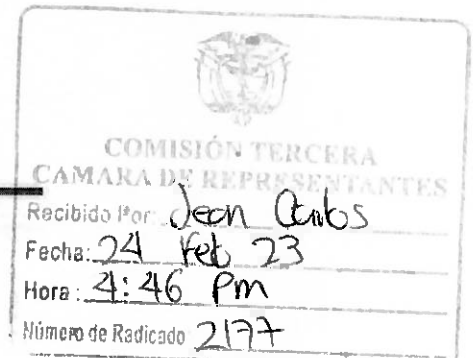 COMISIÓN TERCERA
CAMARA DE REPRESENTANTES
Recibido Por: Jean Carlos
Fecha: 24 Feb 23
Hora: 4:46 Pm
Número de Radicado 2177